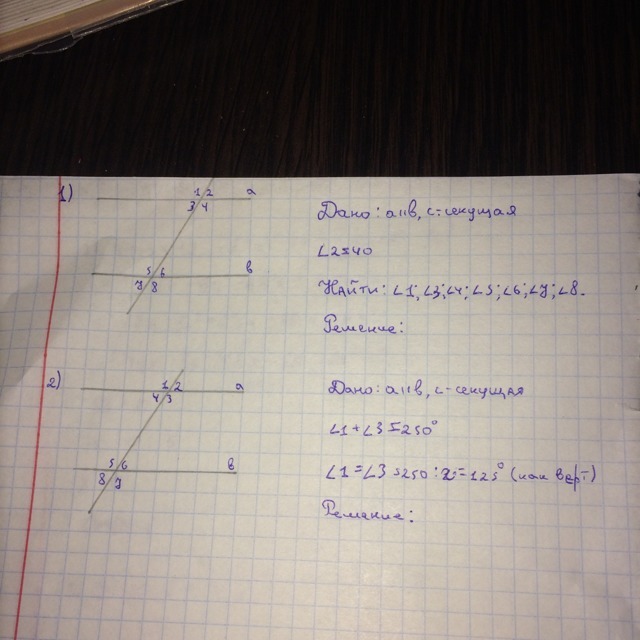 1)
1 2 a
3 4
5 6 в
7 8
Дано: aıı в, с-секущая
∠2=40
Найти: ∠1; ∠3; ∠4; ∠5; ∠6; ∠7; ∠8.
Решение:
2)
1 2 a
4 3
5 6 в
8 7
Дано: a ıı в, с-секущая
∠1+∠3=250°
∠1=∠3=250:2=125° (как верт)
Решение: